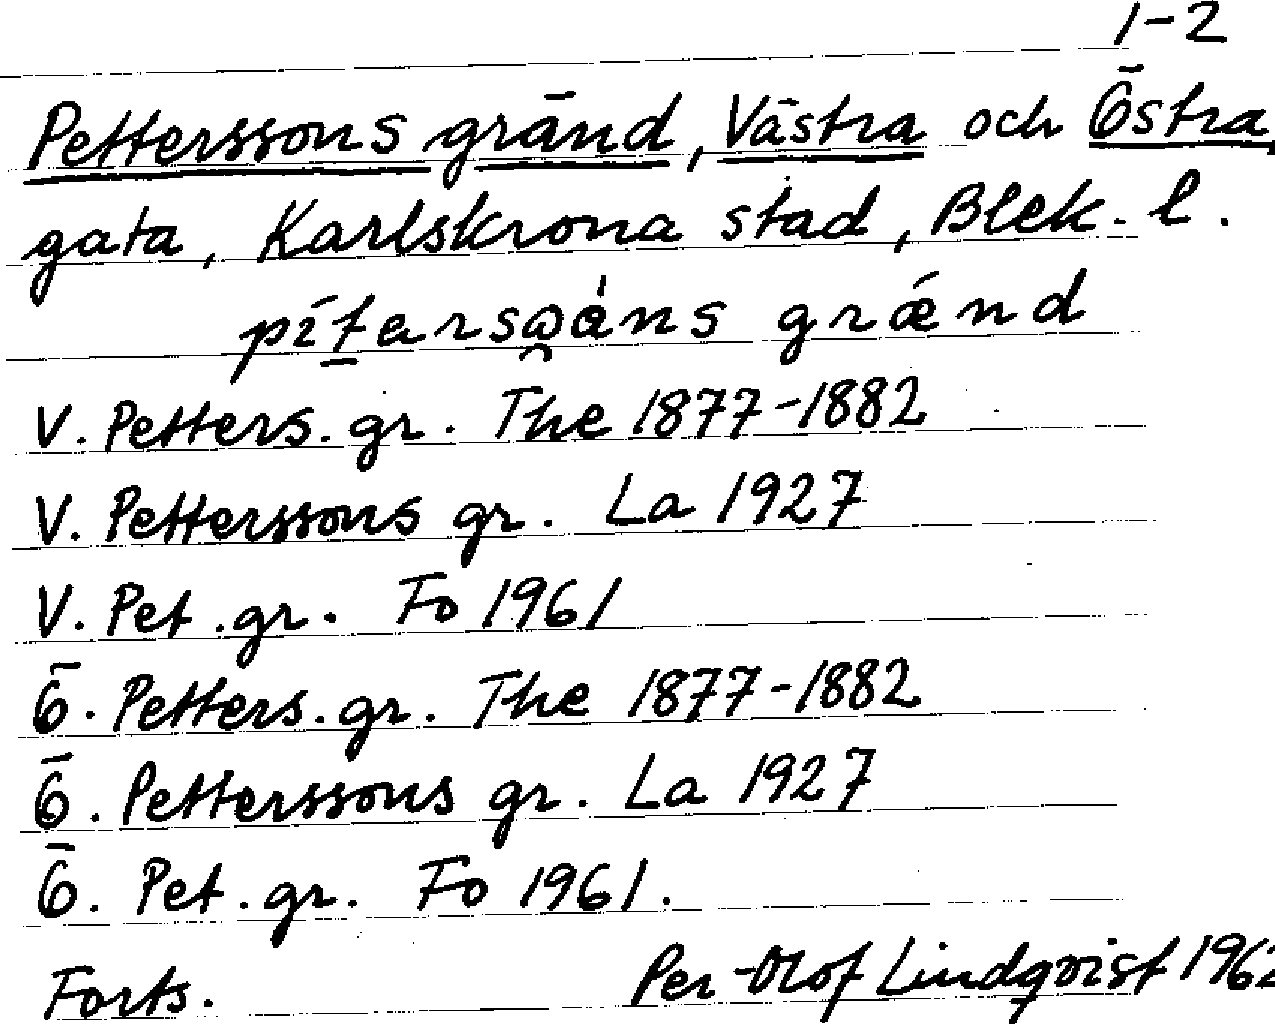 1-2
Petterssons gränd, Västra och Östra
gata, Karlskrona stad, Blek. l.
V. Petters. gr. The 1877-1882
V. Petterssons gr. La 1927
V. Pet. gr. Fo 1961
Ö. Petters. gr. The 1877-1882
Ö. Petterssons gr. La 1927
Ö. Pet. gr. Fo 1961.
Forts. Per-Olof Lindqvist 1962